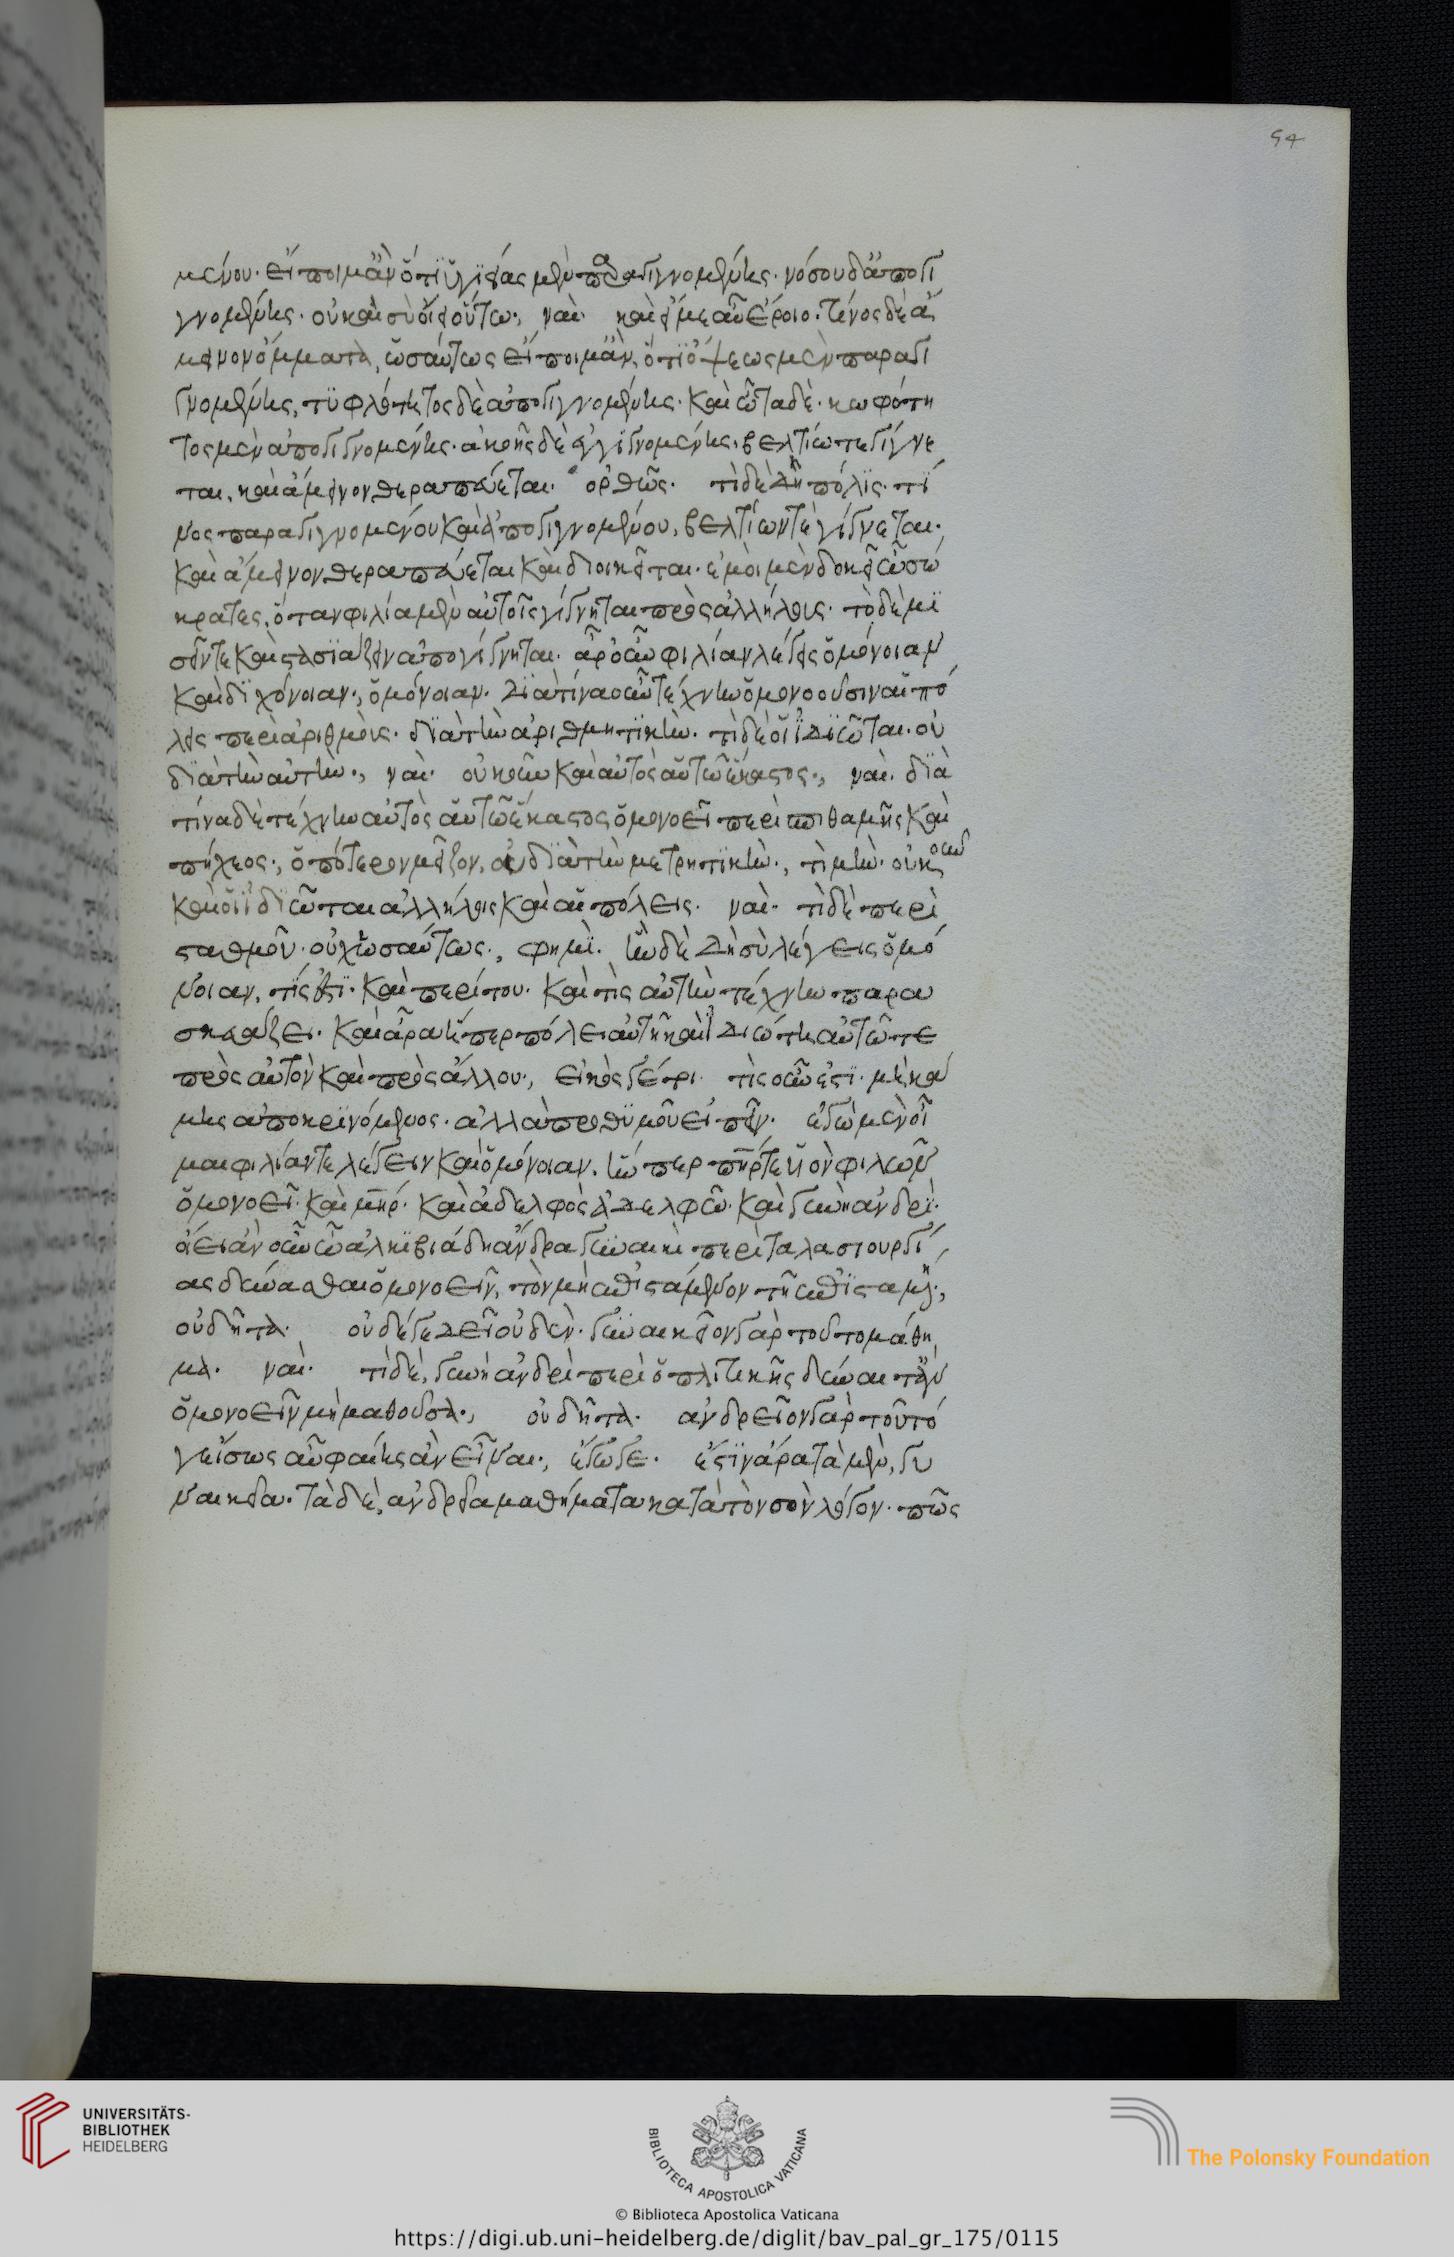 54
μένου· εἴποιμ' ἂν ὅτι ὑγιείας μὲν παραγιγνομένης· νόσου δ' ἀπογι
γνομένης· οὐ καὶ σὺ οἴει οὕτω·, ναί· καὶ εἴ με αὖ ἔροιο· τίνος δὲ ἄ
μεινον ὄμματα, ὡσαύτως εἴποιμ' ἂν, ὅτι ὄψεως μὲν παραγι
γνομένης, τυφλότητος δὲ ἀπογιγνομένης· καὶ ὦτα δὲ· κωφότη
τος μὲν ἀπογιγνομένης· ἀκοῆς δὲ ἐγγιγνομένης, βελτίω τε γίγνε
ται, καὶ ἄμεινον θεραπεύεται· ὀρθῶς· τί δὲ δὴ πόλις· τί
νος παραγιγνομένου καὶ ἀπογιγνομένου, βελτίων τε γίγνεται·
καὶ ἄμεινον θεραπεύεται καὶ διοικεῖται· ἐμοὶ μὲν δοκεῖ ὦ σώ
κρατες, ὅταν φιλία μὲν αὐτοῖς γίγνηται πρὸς ἀλλήλους· τὸ δὲ μι
σεῖν τε καὶ στασιάζειν ἀπογίγνηται· ἆρ' οὖν φιλίαν λέγεις ὁμόνοιαν
καὶ διχόνοιαν·, ὁμόνοιαν· διὰ τίνα οὖν τέχνην ὁμονοοῦσιν αἱ πό
λεις περὶ ἀριθμούς· διὰ τὴν ἀριθμητικήν· τί δὲ οἱ ἰδιῶται· οὐ
διὰ τὴν αὐτήν·, ναί· οὐκοῦν καὶ αὐτὸς αὑτῶ ἕκαστος·, ναί· διὰ
τίνα δὲ τέχνην αὐτὸς αὑτῶ ἕκαστος ὁμονοεῖ περὶ σπιθαμῆς καὶ
πήχεος·, ὁπότερον μεῖζον, οὐ διὰ τὴν μετρητικήν·, τί μήν· οὐκοῦν
καὶ οἱ ἰδιῶται ἀλλήλοις καὶ αἱ πόλεις· ναί· τί δὲ περὶ
σταθμοῦ· οὐχ ὡσαύτως·, φημί· ἣν δὲ δὴ σὺ λέγεις ὁμό
νοιαν, τίς ἐστι· καὶ περὶ του· καὶ τίς αὐτὴν τέχνην παρα
σκευάζει· καὶ ἆρα ἥπερ πόλει αὐτὴ καὶ ἰδιώτη αὑτῶ τε
πρὸς αὑτὸν καὶ πρὸς ἄλλου·, εἰκός γέ τοι· τίς οὖν ἐστι· μὴ κά
μης ἀποκρινόμενος· ἀλλὰ προθυμοῦ εἰπεῖν· ἐγὼ μὲν οἶ
μαι φιλίαν τε λέγειν καὶ ὁμόνοιαν, ἥνπερ πῆρ τε υἱὸν φιλῶν
ὁμονοεῖ· καὶ μῆρ· καὶ ἀδελφὸς ἀδελφῶ· καὶ γυνὴ ἀνδρί·
οἴει ἂν οὖν ὦ ἀλκιβιάδη ἄνδρα γυναικὶ περὶ ταλασιουργί
ας δύνασθαι ὁμονοεῖν, τὸν μὴ ἐπιστάμενον τῆ ἐπισταμένη·,
οὐ δῆτα· οὐδέ γε δεῖ οὐδέν· γυναικεῖον γὰρ τοῦτο μάθη
μα· ναί· τί δέ, γυνὴ ἀνδρὶ περὶ ὁπλιτικῆς δύναιτ' ἂν
ὁμονοεῖν μὴ μαθοῦσα·, οὐ δῆτα· ἀνδρεῖον γὰρ τοῦτό
γε ἴσως αὖ φαίης ἂν εἶναι·, ἔγωγε· ἔστιν ἄρα τὰ μὲν, γυ
ναικεῖα· τὰ δὲ, ἀνδρεῖα μαθήματα κατὰ τὸν σὸν λόγον· πῶς
UNIVERSITÄTS-
BIBLIOTHEK
HEIDELBERG
BIBLIOTECA APOSTOLICA VATICANA
The Polonsky Foundation
© Biblioteca Apostolica Vaticana
https://digi.ub.uni-heidelberg.de/diglit/bav_pal_gr_175/0115